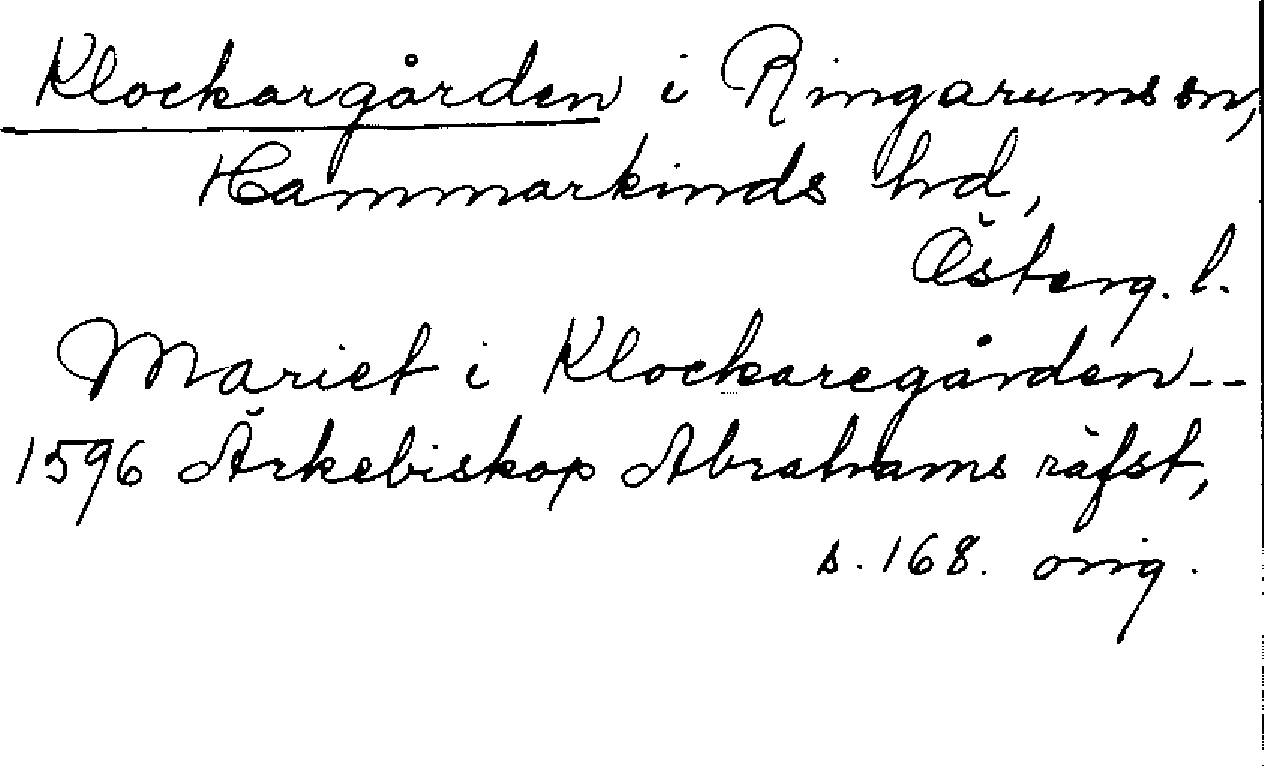 Klockargården i Ringarums sn,
Hammarkinds hd,
Österg. l.
Mariet i Klockaregården--
1596 Ärkebiskop Abrahams räfst,
s. 168. orig.